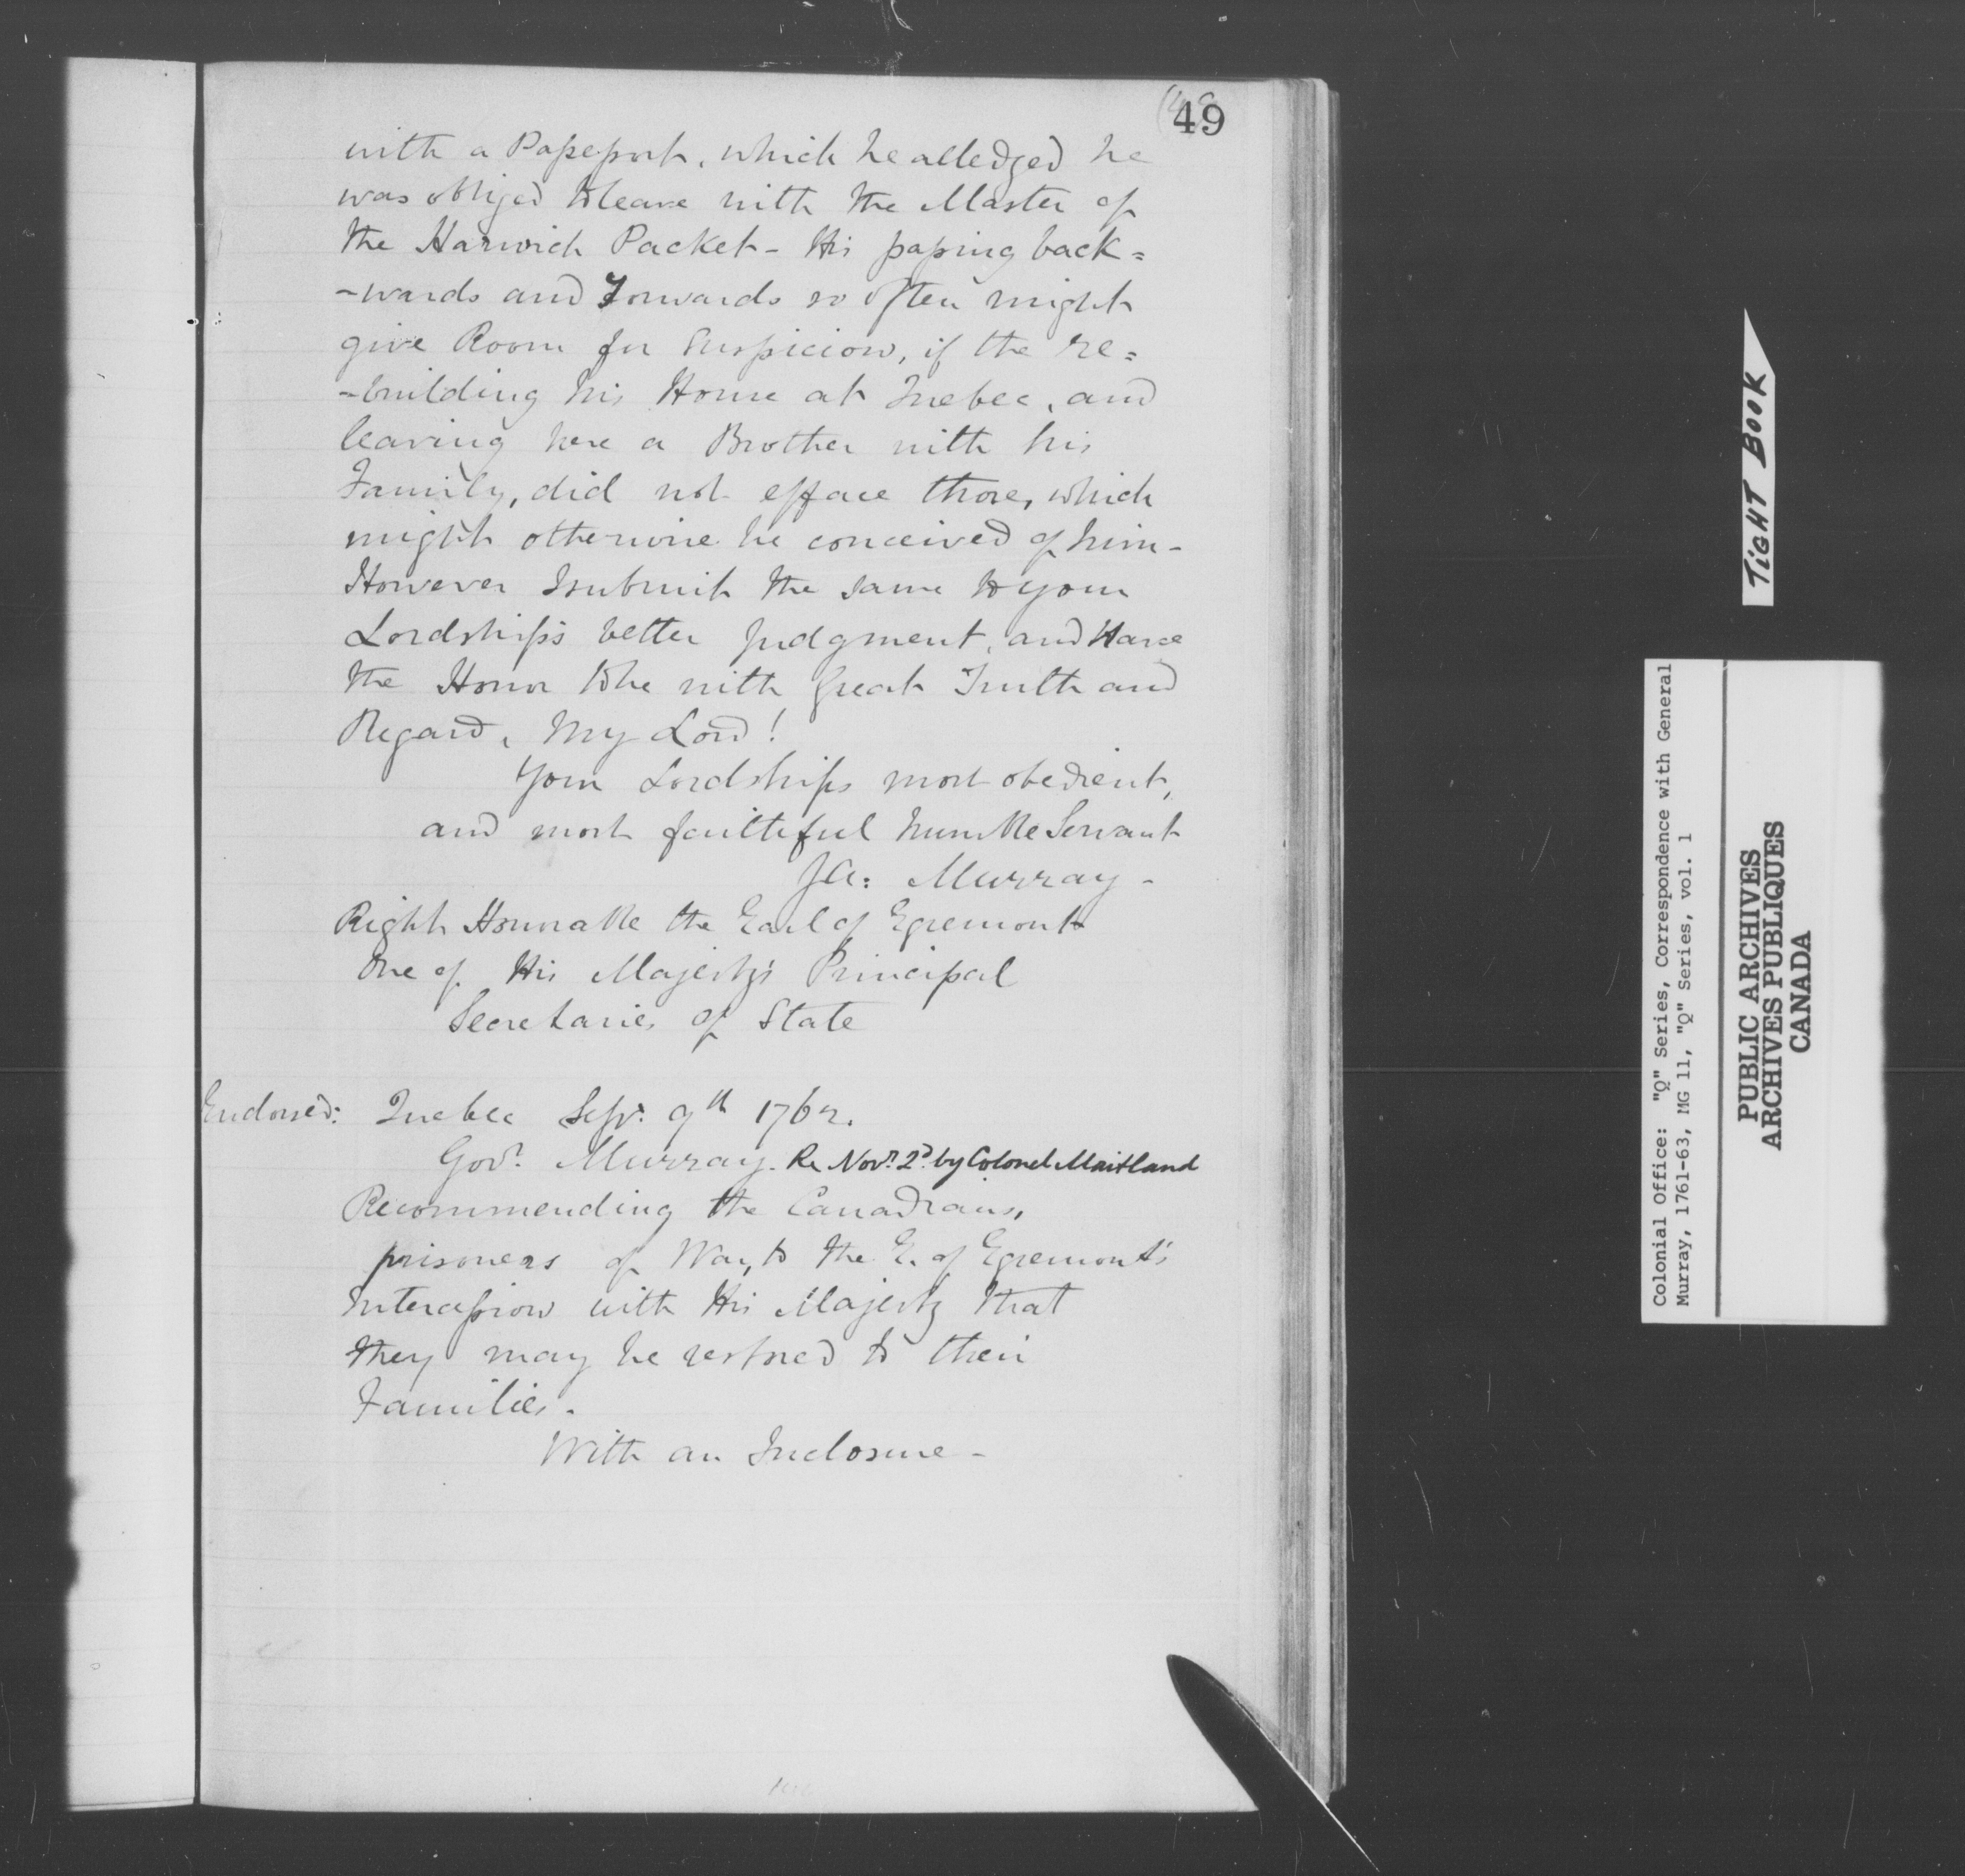 49
with a Passport, which he alledged he
was obliged to leave with the Master of
the Harwich Packet - His passing back=
-wards and Forwards so often might
give Room for Suspicion, if the re=
-building his House at Quebec, and
leaving here a Brother with his
Family, did not efface those, which
might otherwise be conceived of him -
However I submit the same to your
Lordship's better Judgment, and Have
the Honor to be with Great Truth and
Regard, My Lord!
Your Lordships most obedient,
and most faithful humble Servant
Ja: Murray -
Right Honorable the Earl of Egremont
One of His Majesty's Principal
Secretaries of State
Endorsed: Quebec Sepr. 9th 1762.
Govr. Murray. Re Novr. 2d. by Colonel Maitland
Recommending the Canadians,
prisoners of War, to the E. of Egremont's
Intercession with His Majesty that
they may be restored to their
Families.
With an Inclosure -
TIGHT BOOK
Colonial Office: "Q" Series, Correspondence with General
Murray, 1761-63, MG 11, "Q" Series, vol. 1
PUBLIC ARCHIVES
ARCHIVES PUBLIQUES
CANADA